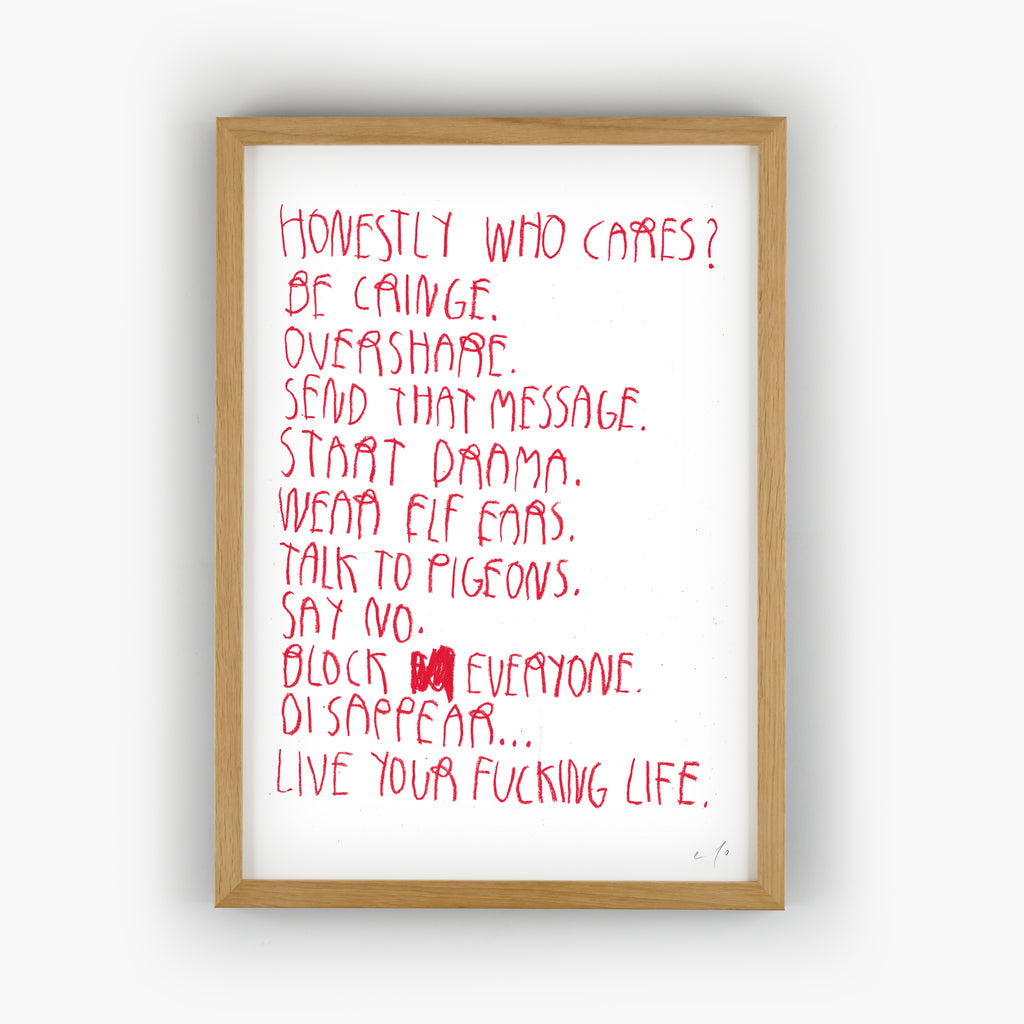 HONESTLY WHO CARES?
BE CRINGE.
OVERSHARE.
SEND THAT MESSAGE.
START DRAMA.
WEAR ELF EARS.
TALK TO PIGEONS.
SAY NO.
BLOCK EVERYONE.
DISAPPEAR...
LIVE YOUR FUCKING LIFE.